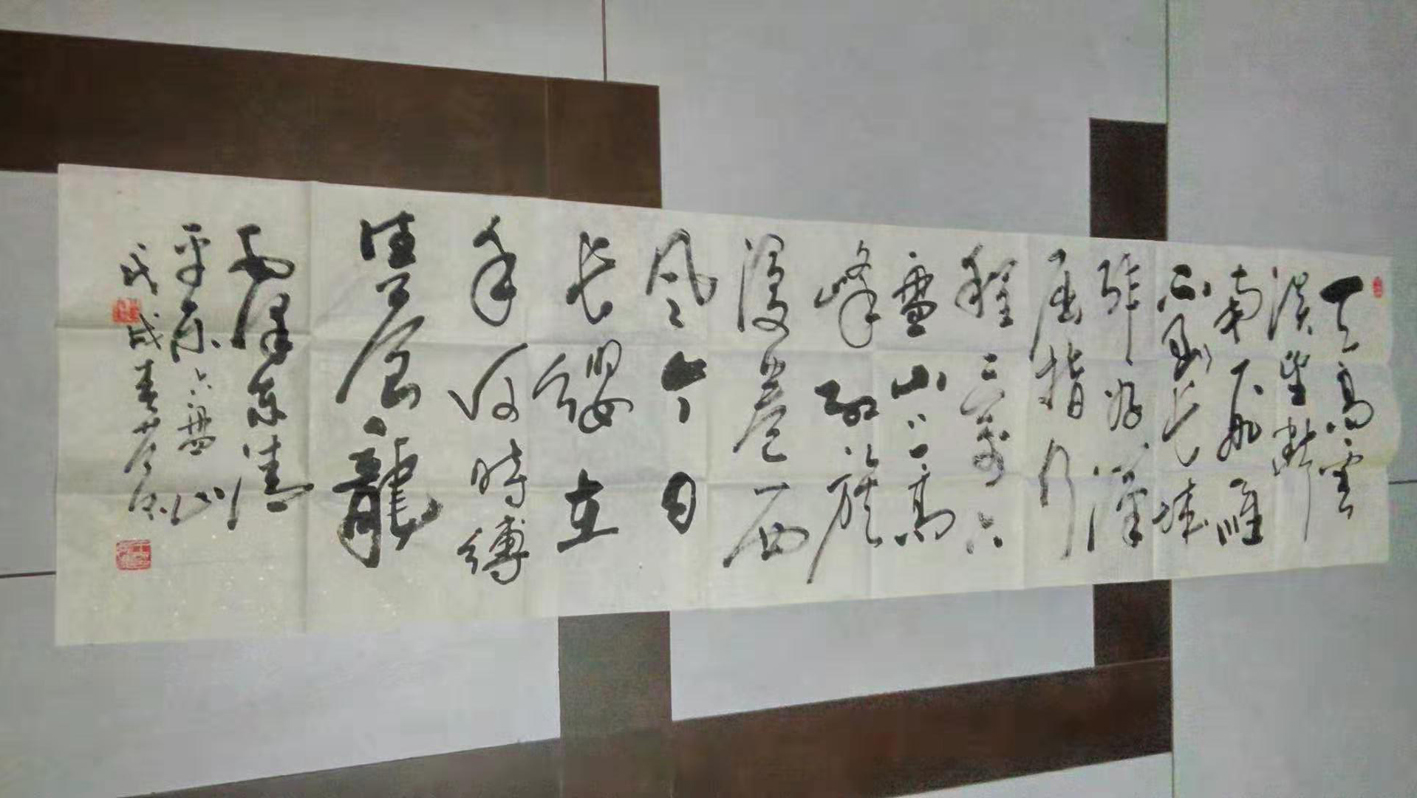 天高雲
淡望斷
南飛雁
不到長城
非好漢
屈指行
程二萬六
盤山上高
峰紅旗
漫卷西
風今日
長纓在
手何時縛
住蒼龍
毛澤東清
平樂六盤山
戊戌春